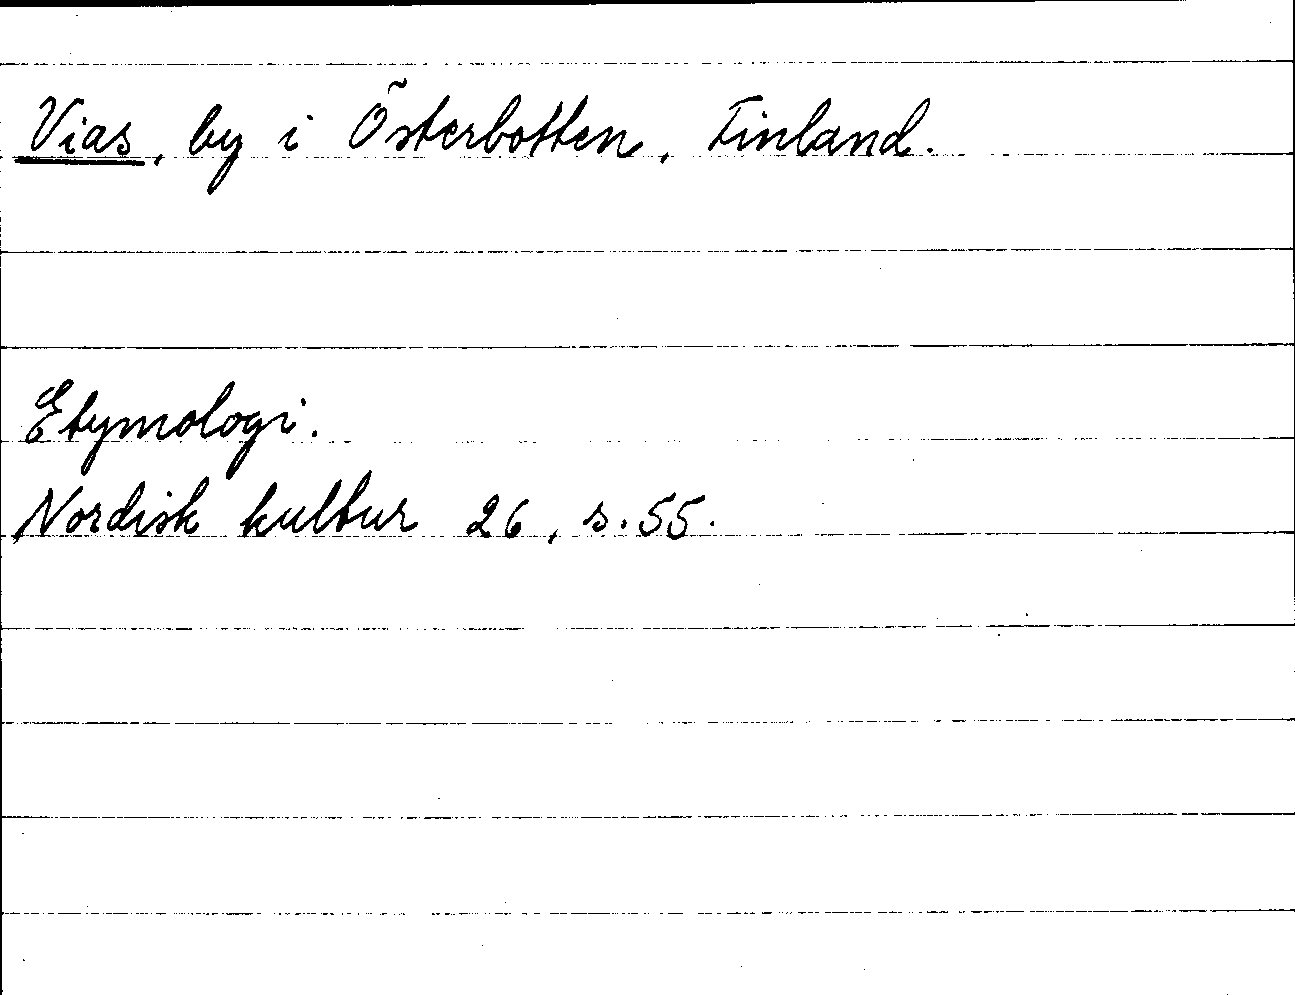 Vias, by i Österbotten, Finland.
Etymologi.
Nordisk kultur 26, s. 55.